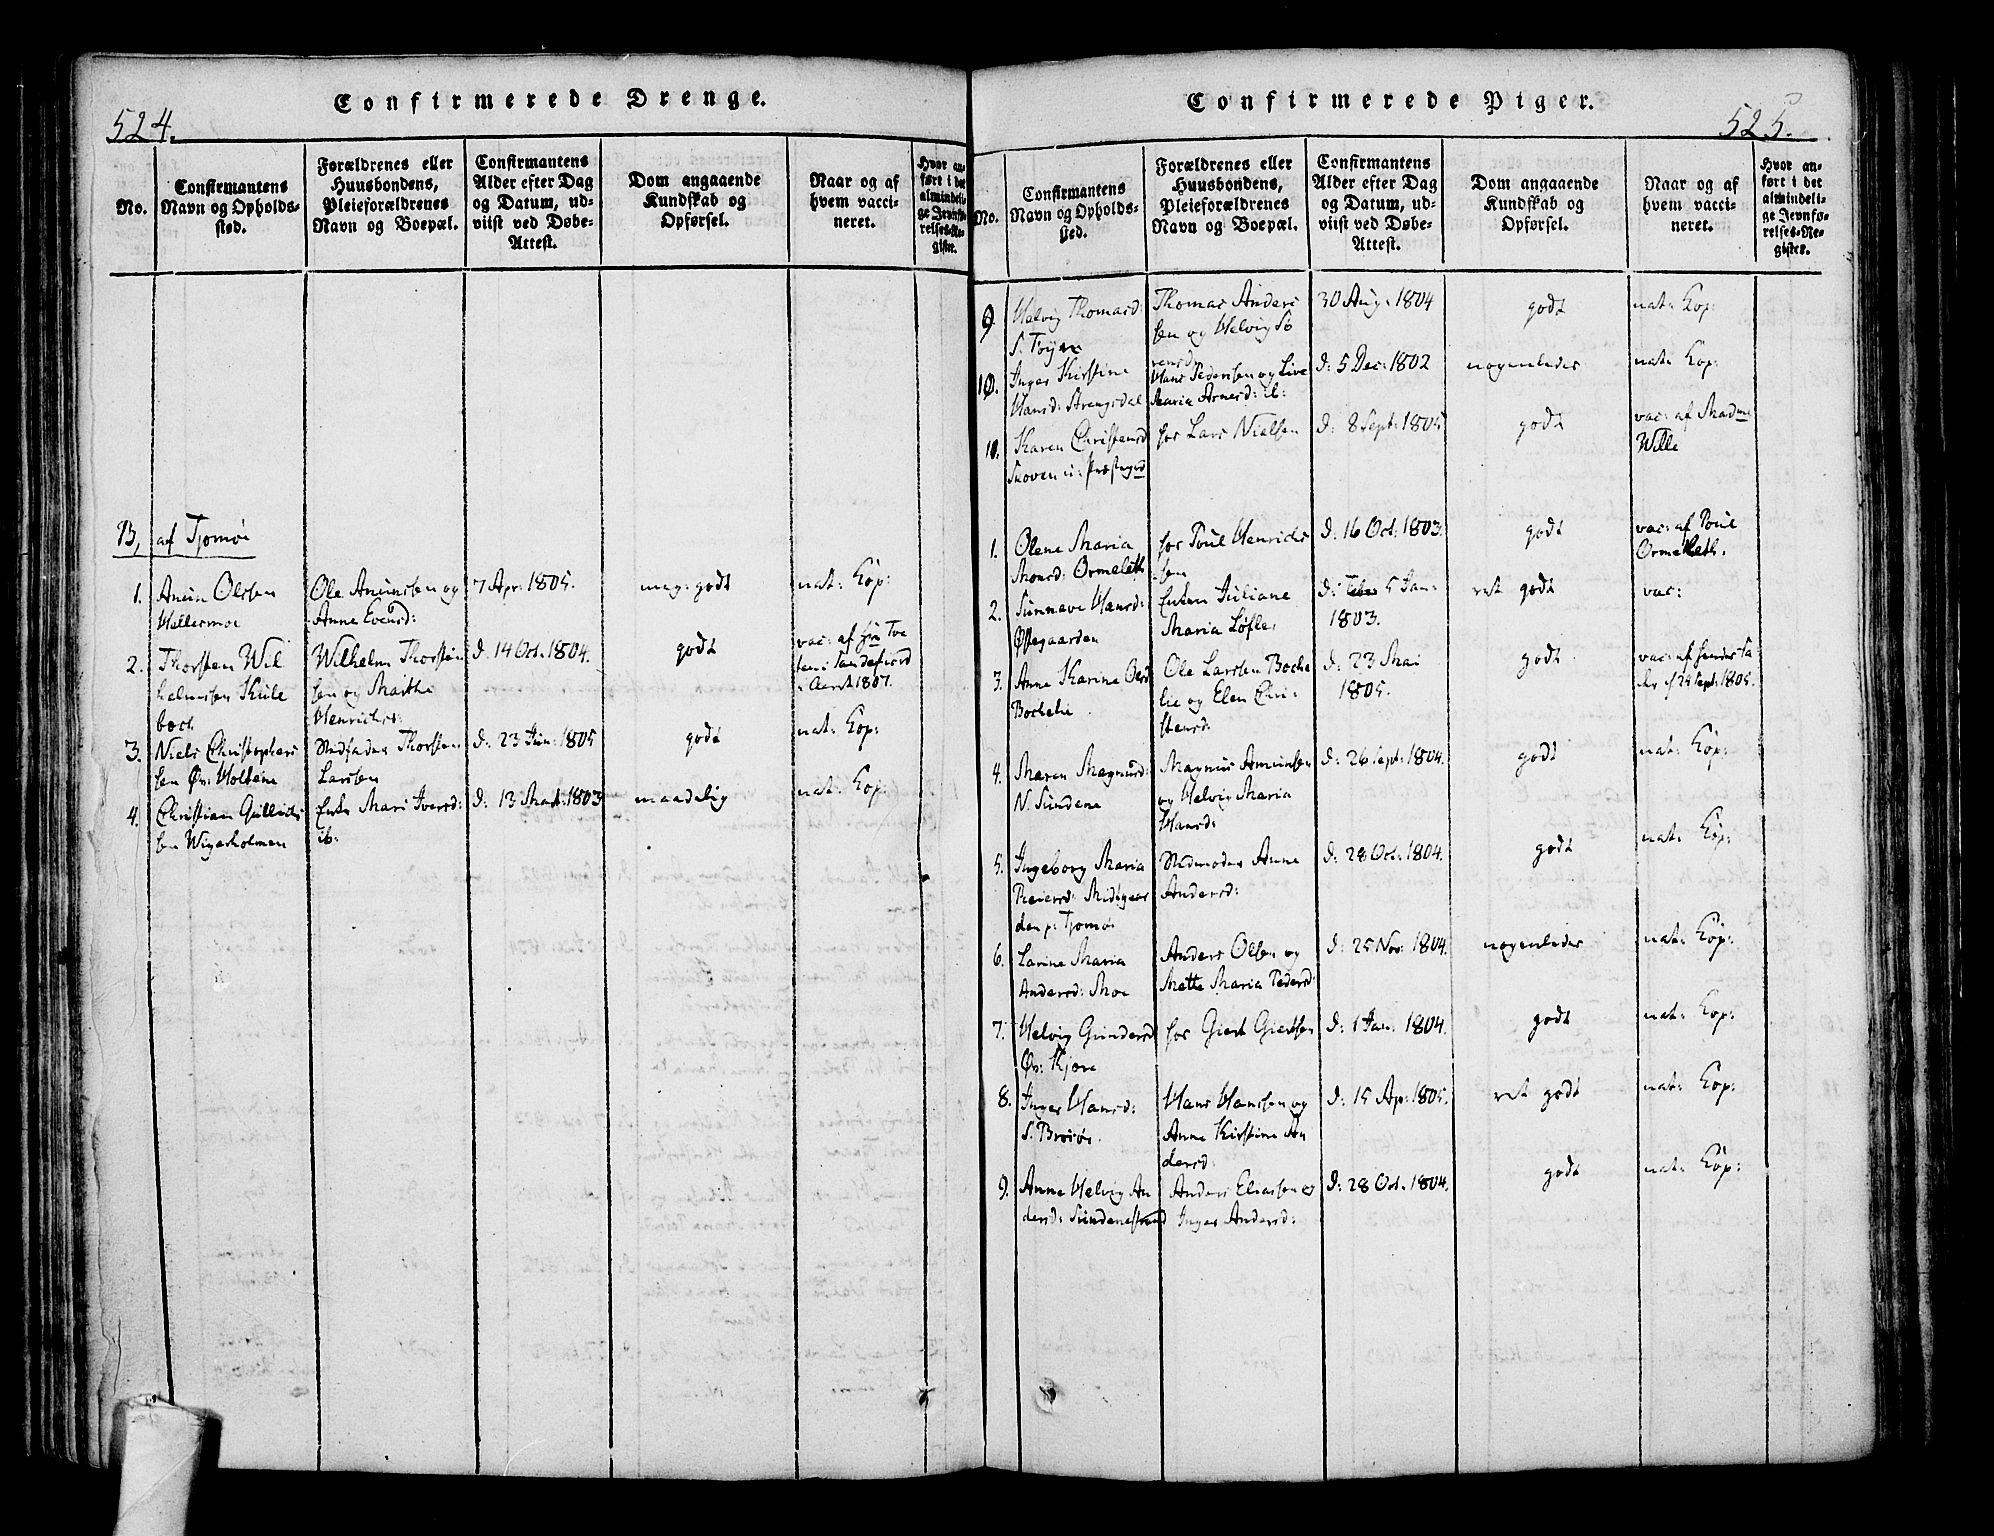 524.
Confirmerede Drenge.
No.
Confirmantens
Navn og Opholds-
sted.
Forældrenes eller
Huusbondens,
Pleieforældrenes
Navn og Boepæl.
Confirmantens
Alder efter Dag
og Datum, ud-
viist ved Døbe-
Attest.
Dom angaaende
Kundskab og
Opførsel.
Naar og af
hvem vacci-
neret.
Hvor an-
ført i det
almindeli-
ge Jevnfø-
relses-Re-
gister.
B, af Tjomøe
1. Amun Olssen
Hellermoe
Ole Amunssen og
Anne Evensd:
7 Apr: 1805.
meg: godt
nat: Kop:
2. Thorsten Wil
helmsen
Wilhelm Thorsten
sen og Marthe
Henrichs:
d: 14 Oct: 1804.
godt
vac: af
1801.
3. Niels Christophers
sen Øv: Holtene
Stedfader Thorsten
Larssen
d: 23 Jun: 1805
godt
nat: Kop:
4. Christian Gullichs
sen
Enke Mari Iversd:
ib:
d: 13 1803
maadelig
nat: Kop:
Confirmerede Piger.
525.
No.
Confirmantens
Navn og Opholds-
sted.
Forældrenes eller
Huusbondens,
Pleieforældrenes
Navn og Boepæl.
Confirmantens
Alder efter Dag
og Datum, ud-
viist ved Døbe-
Attest.
Dom angaaende
Kundskab og
Opførsel.
Naar og af
hvem vacci-
neret.
Hvor an-
ført i det
almindeli-
ge Jevnfø-
relses-Re-
gister.
9. Helvig Thomasd:
S. Toyen
Thomas Anders
sen og Helvig Sö
rensd:
30 Aug: 1804
godt
nat: Kop:
10. Inger Kirstine
Hansd: Strengsdal
Hans Pedersen og Live
Maria Arnesd: ib:
d: 5 Dec: 1802
nogenledes
nat: Kop:
11. Karen Christensd
Skoven u: Præstegrd
hos Lars Nielsen
d: 8 Sept: 1805
godt
vac: af Madme
Wille
1. Olene Maria
Monsd: Ormeleth
hos Poul Henrichs
sen
d: 16 Oct: 1803.
godt
vac: af Poul
Ormeleth.
2. Sunneve Hansd:
Østegaarden
Enken Juliane
Maria Løfler
d: 5 Jan:
1803.
ret godt
vac:
3. Anne Karine Olsd
Bochelie
Ole Larssen Boche
lie og Elen Chri-
stensd:
d: 23 Mai
1805.
godt
vac: af
Sept: 1805.
4. Maren Magnusd:
N. Sundene
Magnus Amunsen
og Helvig Maria
Hansd:
d: 26 Sept: 1804.
godt
nat: Kop:
5. Ingeborg Maria
Reiersd: Midtgaar
den p: Tjomøe
Stedmoder Anne
Andersd:
d: 28 Oct: 1804.
godt
nat: Kop:
6. Larine Maria
Andersd: Moe
Anders Olsen og
Mette Maria Pedersd:
d: 25 Nov: 1804.
nogenledes
nat: Kop:
7. Helvig Gundersd
Øv: Kjøre
hos Giert Giertsen
d: 1 Jan: 1804.
godt
nat: Kop:
8. Inger Hansd:
S. Brøtsøe
Hans Hanssen og
Anne Kirstine An
dersd:
d: 15 Ap: 1805.
ret godt
nat: Kop:
9. Anne Helvig An
dersd: Sundenestrand
Anders Eliassen og
Inger Andersd:
d: 28 Oct. 1804.
godt
nat: Kop: